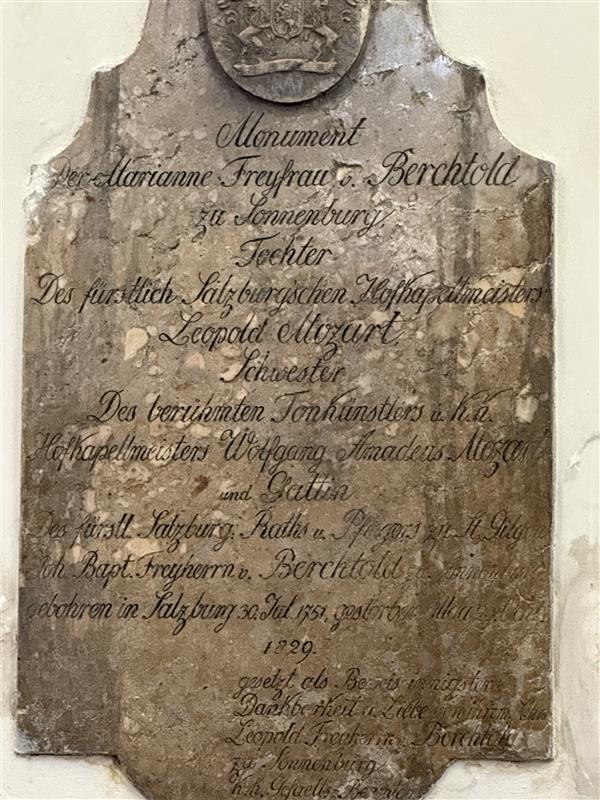 Monument
Der Marianne Freyfrau v. Berchtold
zu Sonnenburg,
Tochter
Des fürstlich Salzburg'schen Hofkapellmeisters
Leopold Mozart,
Schwester
Des berühmten Tonkünstlers u. k. k.
Hofkapellmeisters Wolfgang Amadeus Mozart
und Gattin
Des fürstl. Salzburg. Raths u. Pflegers zu St. Gilgen
Joh. Bapt. Freyherrn v. Berchtold zu Sonnenburg
gebohren in Salzburg 30. Jul. 1751, gestorben
1829.
gesetzt als Beweis innigster
Dankberkeit u. Liebe von ihrem
Leopold Freyherrn v. Berchtold
zu Sonnenburg
k. k. Gefaells-Beamten